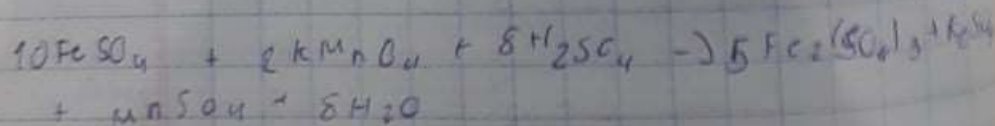 10FeSO₄ + 2KMnO₄ + 8H₂SO₄ → 5Fe₂(SO₄)₃ + K₂SO₄
+ MnSO₄ + 8H₂O